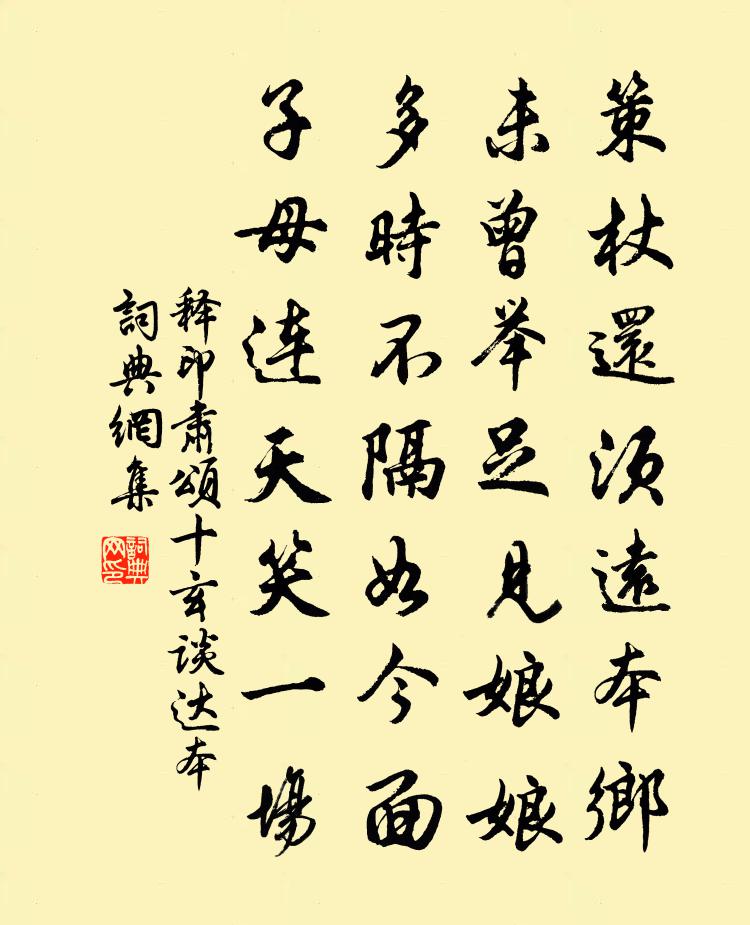 策杖還須遠本鄉
未曾举足見娘娘
多時不隔如今面
子母連天笑一場
释印肅頌十玄談达本
詞典網集
詞典网印